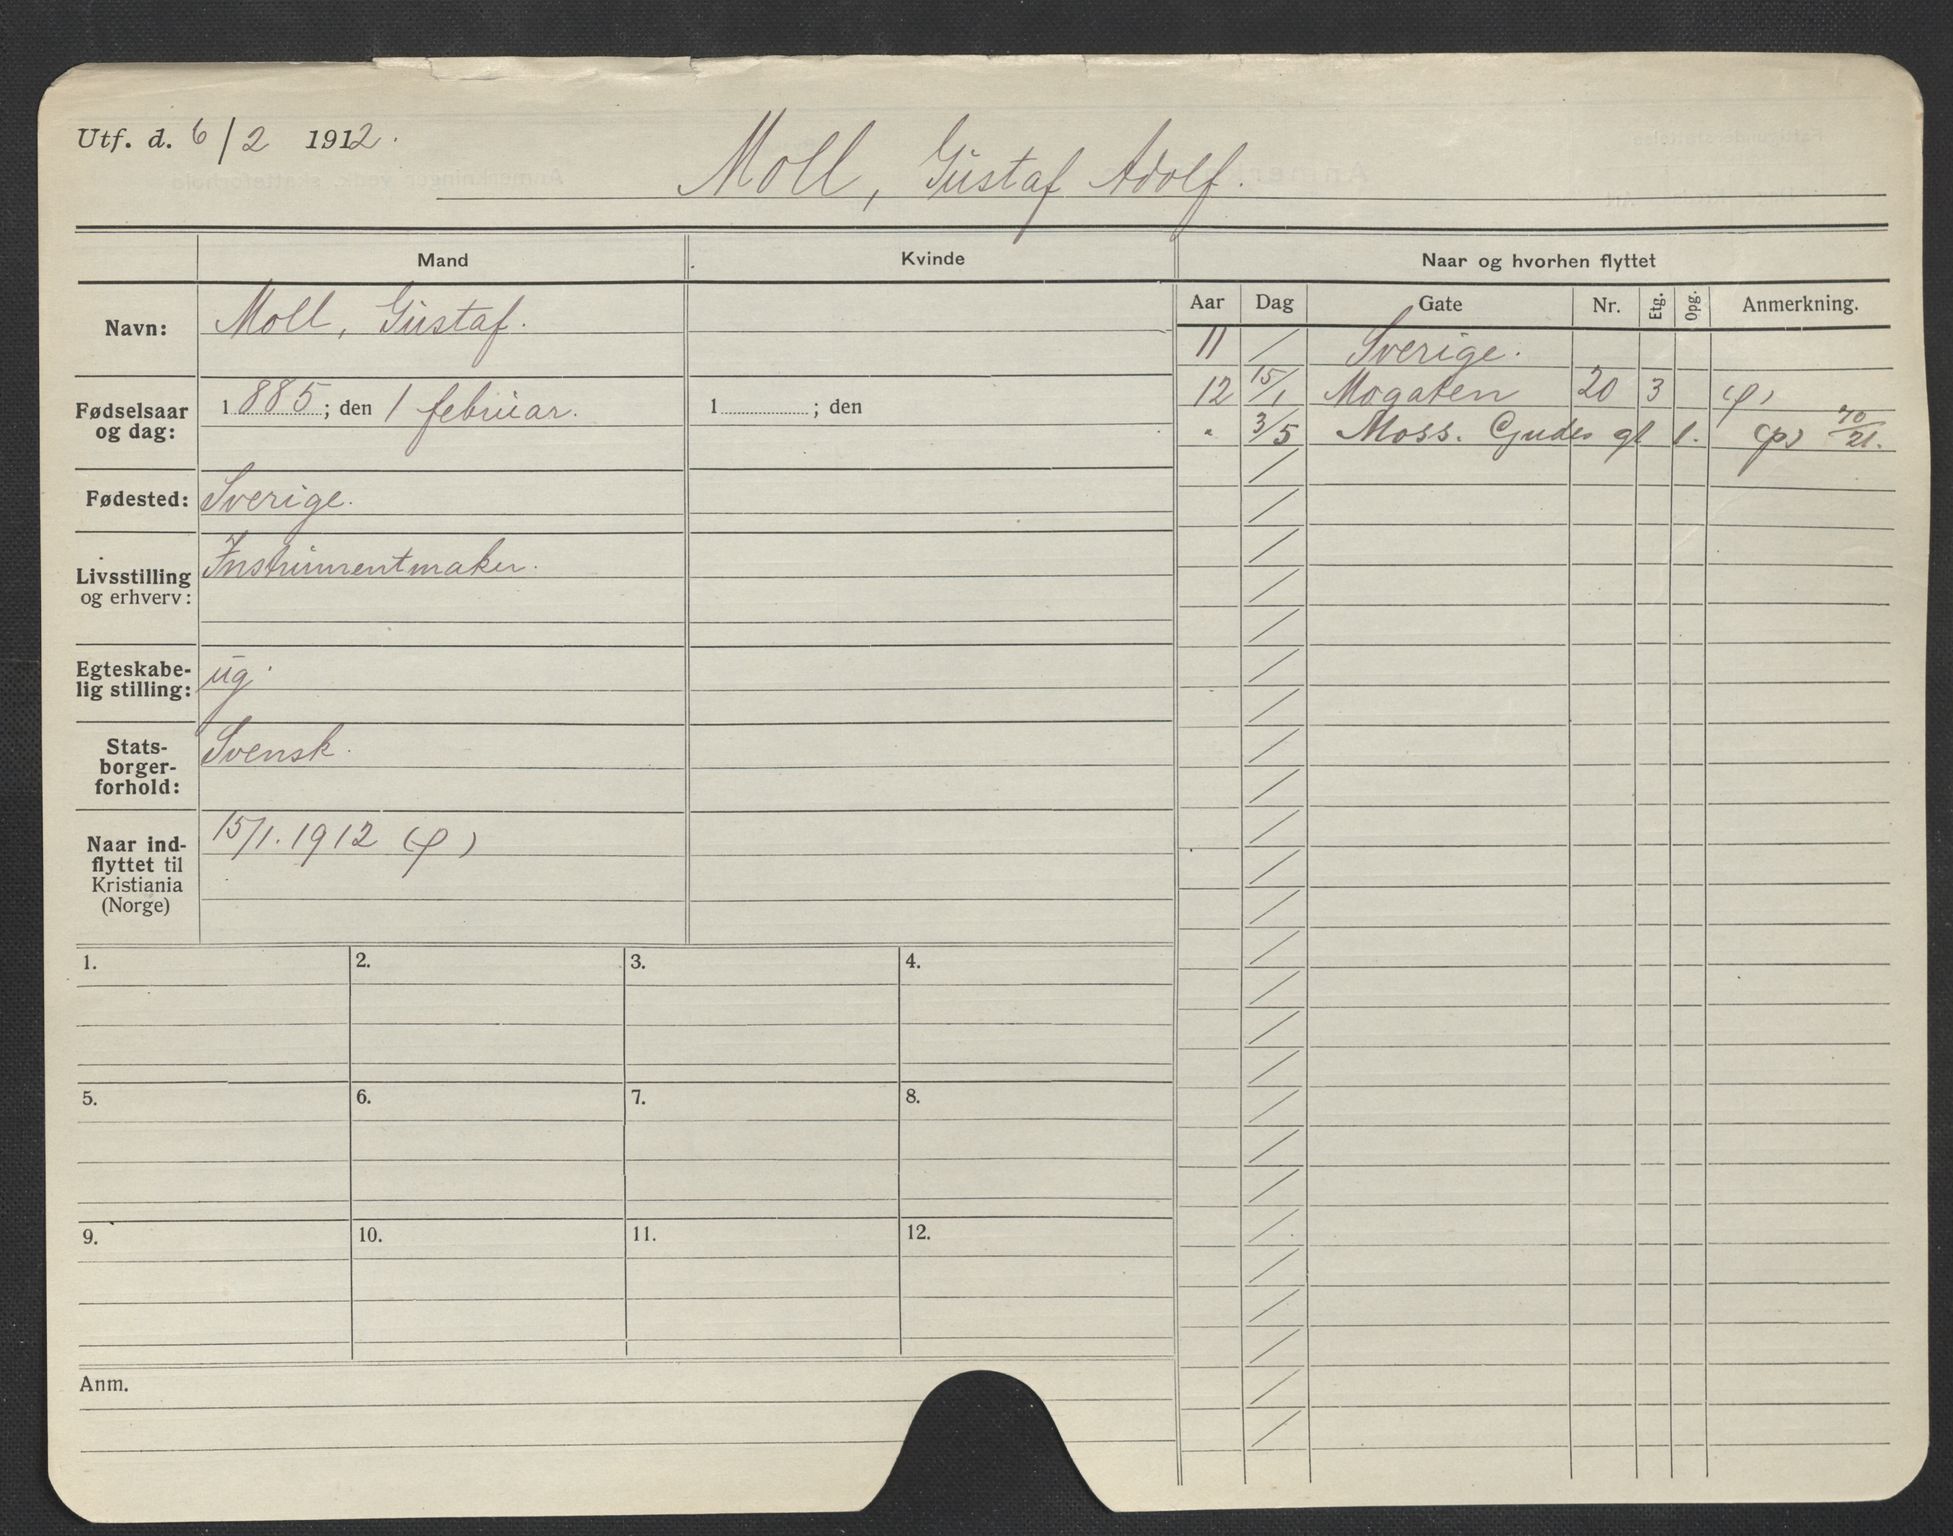 Utf. d. 6/2 1912.
Moll, Gustaf Adolf.
Mand
Kvinde
Naar og hvorhen flyttet
Navn:
Moll, Gustaf.
Fødselsaar og dag:
1885; den 1 februar.
1 ; den
Fødested:
Sverige.
Livsstilling og erhverv:
Instrumentmaker.
Egteskabe-
lig stilling:
ug.
Stats-
borger-
forhold:
Svensk.
Naar ind-
flyttet til
Kristiania
(Norge)
15/1. 1912 (p)
Aar Dag Gate Nr. Etg. Opg. Anmerkning.
11 / Sverige.
12 15/1 Mogaten 20 3 (p)
" 3/5 Moss. Gudes gt 1. (p) 70/21.
1. 2. 3. 4.
5. 6. 7. 8.
9. 10. 11. 12.
Anm.